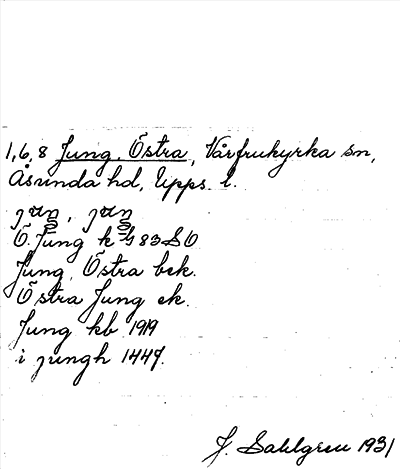 1, 6, 8 Jung, Östra, Vårfrukyrka sn,
Åsunda hd, Upps. l.
Ö. Jung k 483 SO
Jung, Östra bek.
Östra Jung ek.
Jung kb 1919
i jungh 1447.
J. Sahlgren 1931